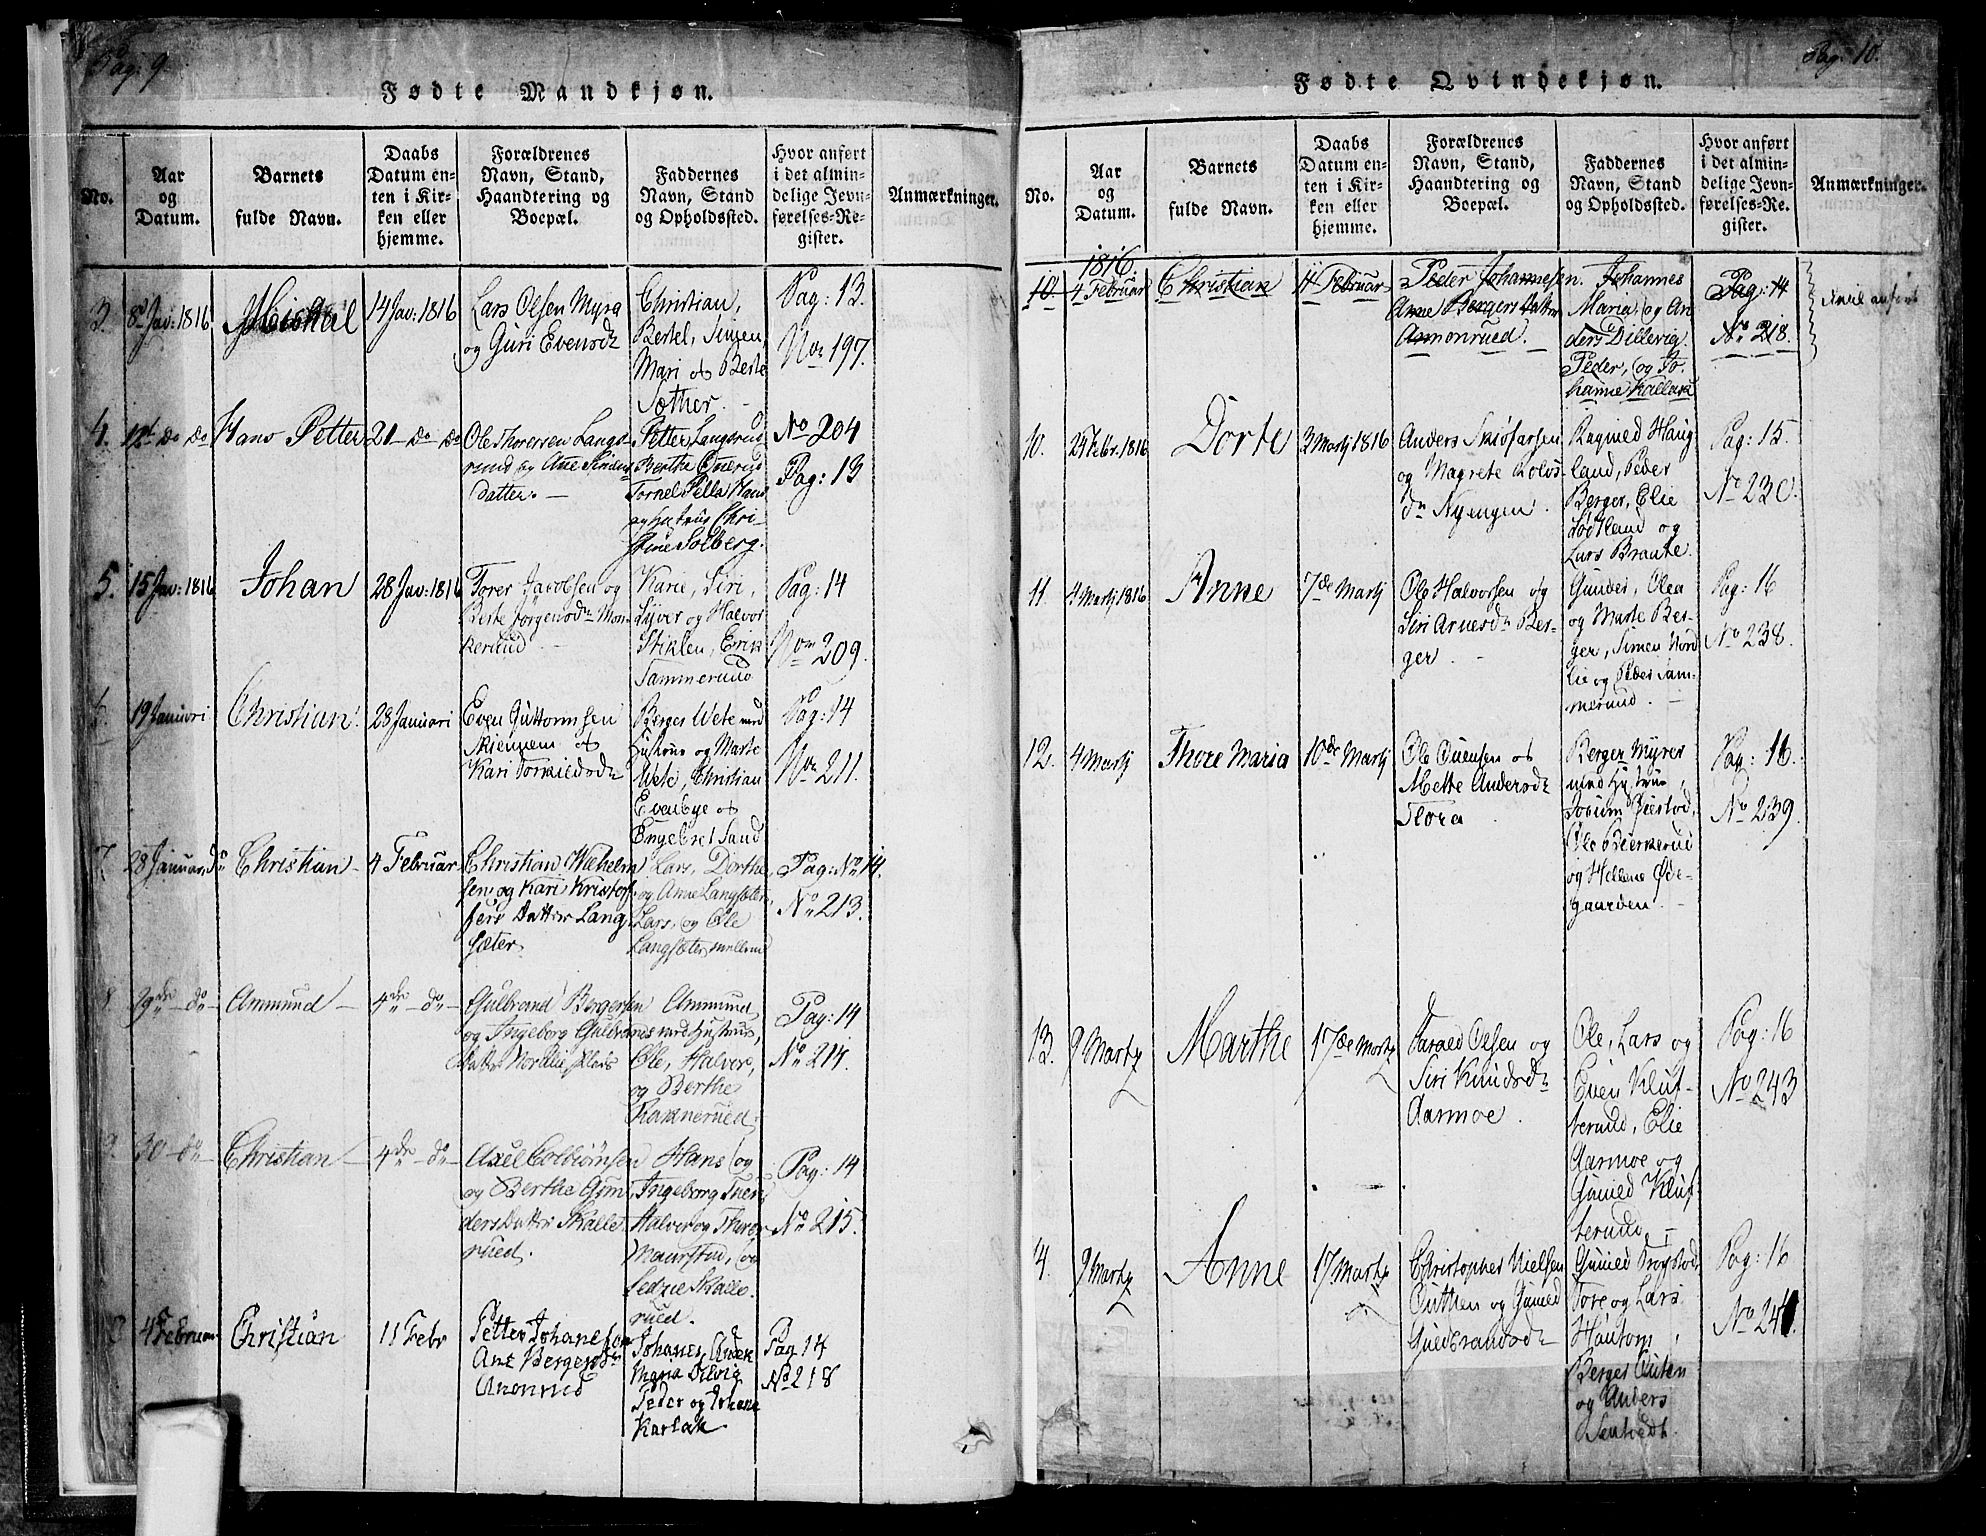 Pag: 9
Fødte Mandkjøn.
No.
Aar
og
Datum.
Barnets
fulde Navn.
Daabs
Datum en-
ten i Kir-
ken eller
hjemme.
Forældrenes
Navn, Stand,
Haandtering og
Boepæl.
Faddernes
Navn, Stand
og Opholdssted.
Hvor anført
i det almin-
delige Jevn-
førelses-Re-
gister.
Anmærkninger.
3. 8de Jan: 1816
Michal
14 Jan: 1816
Lars Olsen Myra
og Guri Evensdr
Christian,
Bertel, Simen
Mari og Berte
Sæther.
Pag: 13.
No 197.
4. 12te do do
Hans Petter
21 do do
Ole Thoresen Langs
rund og Ane
datter.
Petter Langsrud
Berthe
Pella Hans
og hustrue Chri-
stine Solberg.
No 204
Pag: 13
5. 15 Jan: 1816
Johan
28 Jan: 1816
Torer Jacobsen og
Berte Jørgensdr Mon-
kerud
Karie, Siri,
Syver og Halvor
Stiklen, Erik
Tammerud
Pag: 14
No 209.
6. 19 Januari
Christian
28 Januari
Even Guttormsen
Skiennem og
Kari Torkieldsdr
Berges Wete med
Hustrue og Marte
Wete, Christian
Evenbye og
Engebret Sand
Pag: 14
No 211.
7. 28 Januar
Christian
4 Februar
Christian Wilhelm
sen og Kari Kristof
fers Datter Lang
sæter.
Lars, Dorthe,
og Anne Langsæter,
Lars, og Ole
Langsæter mellem
Pag: No 14.
No 213.
8. 29de do
Ammund
4de do
Gulbrand Bergersen
og Ingeborg Gulbrands
Datter Nordlie
Ammund
med Hustrue,
Ole, Halver,
og Berthe
Raknerued.
Pag: 14
No 214.
9. 30 do
Christian
4de do
Axel Colbiønsen
og Berthe Gun
ders Datter Skalle
rued.
Hans og
Ingeborg
Halver og Thore
og
Skalle
rued.
Pag: 14
No 215.
4 Februar
Christian
11 Febr
Petter Johanesen
Ane Bergersdr
Amonrud
Johanes, Anders
Maria Dilvig
Peder og Johane
Karlak
Pag 14
No 218
Pag: 10.
Fødte Qvindekjøn.
No.
Aar
og
Datum.
Barnets
fulde Navn.
Daabs
Datum en-
ten i Kir-
ken eller
hjemme.
Forældrenes
Navn, Stand,
Haandtering og
Boepæl.
Faddernes
Navn, Stand
og Opholdssted.
Hvor anført
i det almin-
delige Jevn-
førelses-Re-
gister.
Anmærkninger.
1816
10. 4 Februar
Christian
11 Februar
Peder Johannesen
Anne Bergers datter
Amonrued.
Johannes
Maria, og An
ders Dillevig
Peder, og Jo
hanne Kallack
Pag: 14
No 218.
anført
10. 25 Febr. 1816
Dorte
3 Martj 1816
Anders Skiofarsen
og Magrete Kolds
dr Nyengen
Ragnied Haug
land, Peder
Berger, Elie
Hodtland og
Lars Braate.
Pag: 15.
No 230.
11. 4 Martj 1816
Anne
7de Martj
Ole Halvorsen og
Siri Arnesdr Ber-
ger
Gunder, Olea
og Marte Ber-
ger, Simen Nord
lie og Peder Sam-
merund.
Pag: 16
No 238.
12. 4 Martj
Thore Maria
10de Martj
Ole Ouensen og
Mette Andersdr
Flora
Berger Myrer
med Hustrue,
Jorum
Ole Bierkerud
og Hellene Øde-
gaarden.
Pag: 16.
No 239.
13. 9 Martz
Marthe
17de Martz
Harald Olsen og
Siri Knudsdr
Aarmoe
Ole, Lars og
Even Kluf-
terund, Elie
Aarmoe og
Gunild Kluf-
terund.
Pag: 16
No 243
14. 9 Martz
Anne
17 Martz
Christopher Nielsen
Outhen og Gunild
Guldbrandsdr
Gunild Frogstod
Tore og Lars
Hautom,
Berges Outen
og Anders
Pag: 16
No 244.